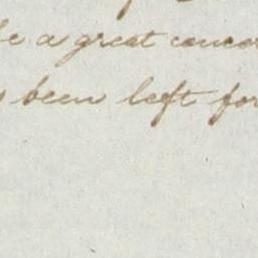 be a great concer
been left for